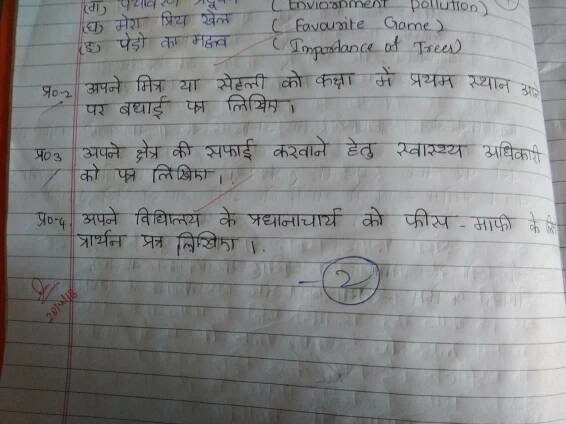 (ग) पर्यावरण प्रदूषण (Enviornment pollution)
(घ) मेरा प्रिय खेल (Favourite Game)
(ड़) पेड़ो का महत्व (Importance of Trees)
प्र०-2 अपने मित्र या सेहली को कक्षा में प्रथम स्थान आने
पर बधाई पत्र लिखिए।
प्र०3 अपने क्षेत्र की सफाई करवाने हेतु स्वास्थ्य अधिकारी
को पत्र लिखिए।
प्र०-4 अपने विधालय के प्रधानाचार्य को फीस-माफी के लिए
प्रार्थन पत्र लिखिए।
-2